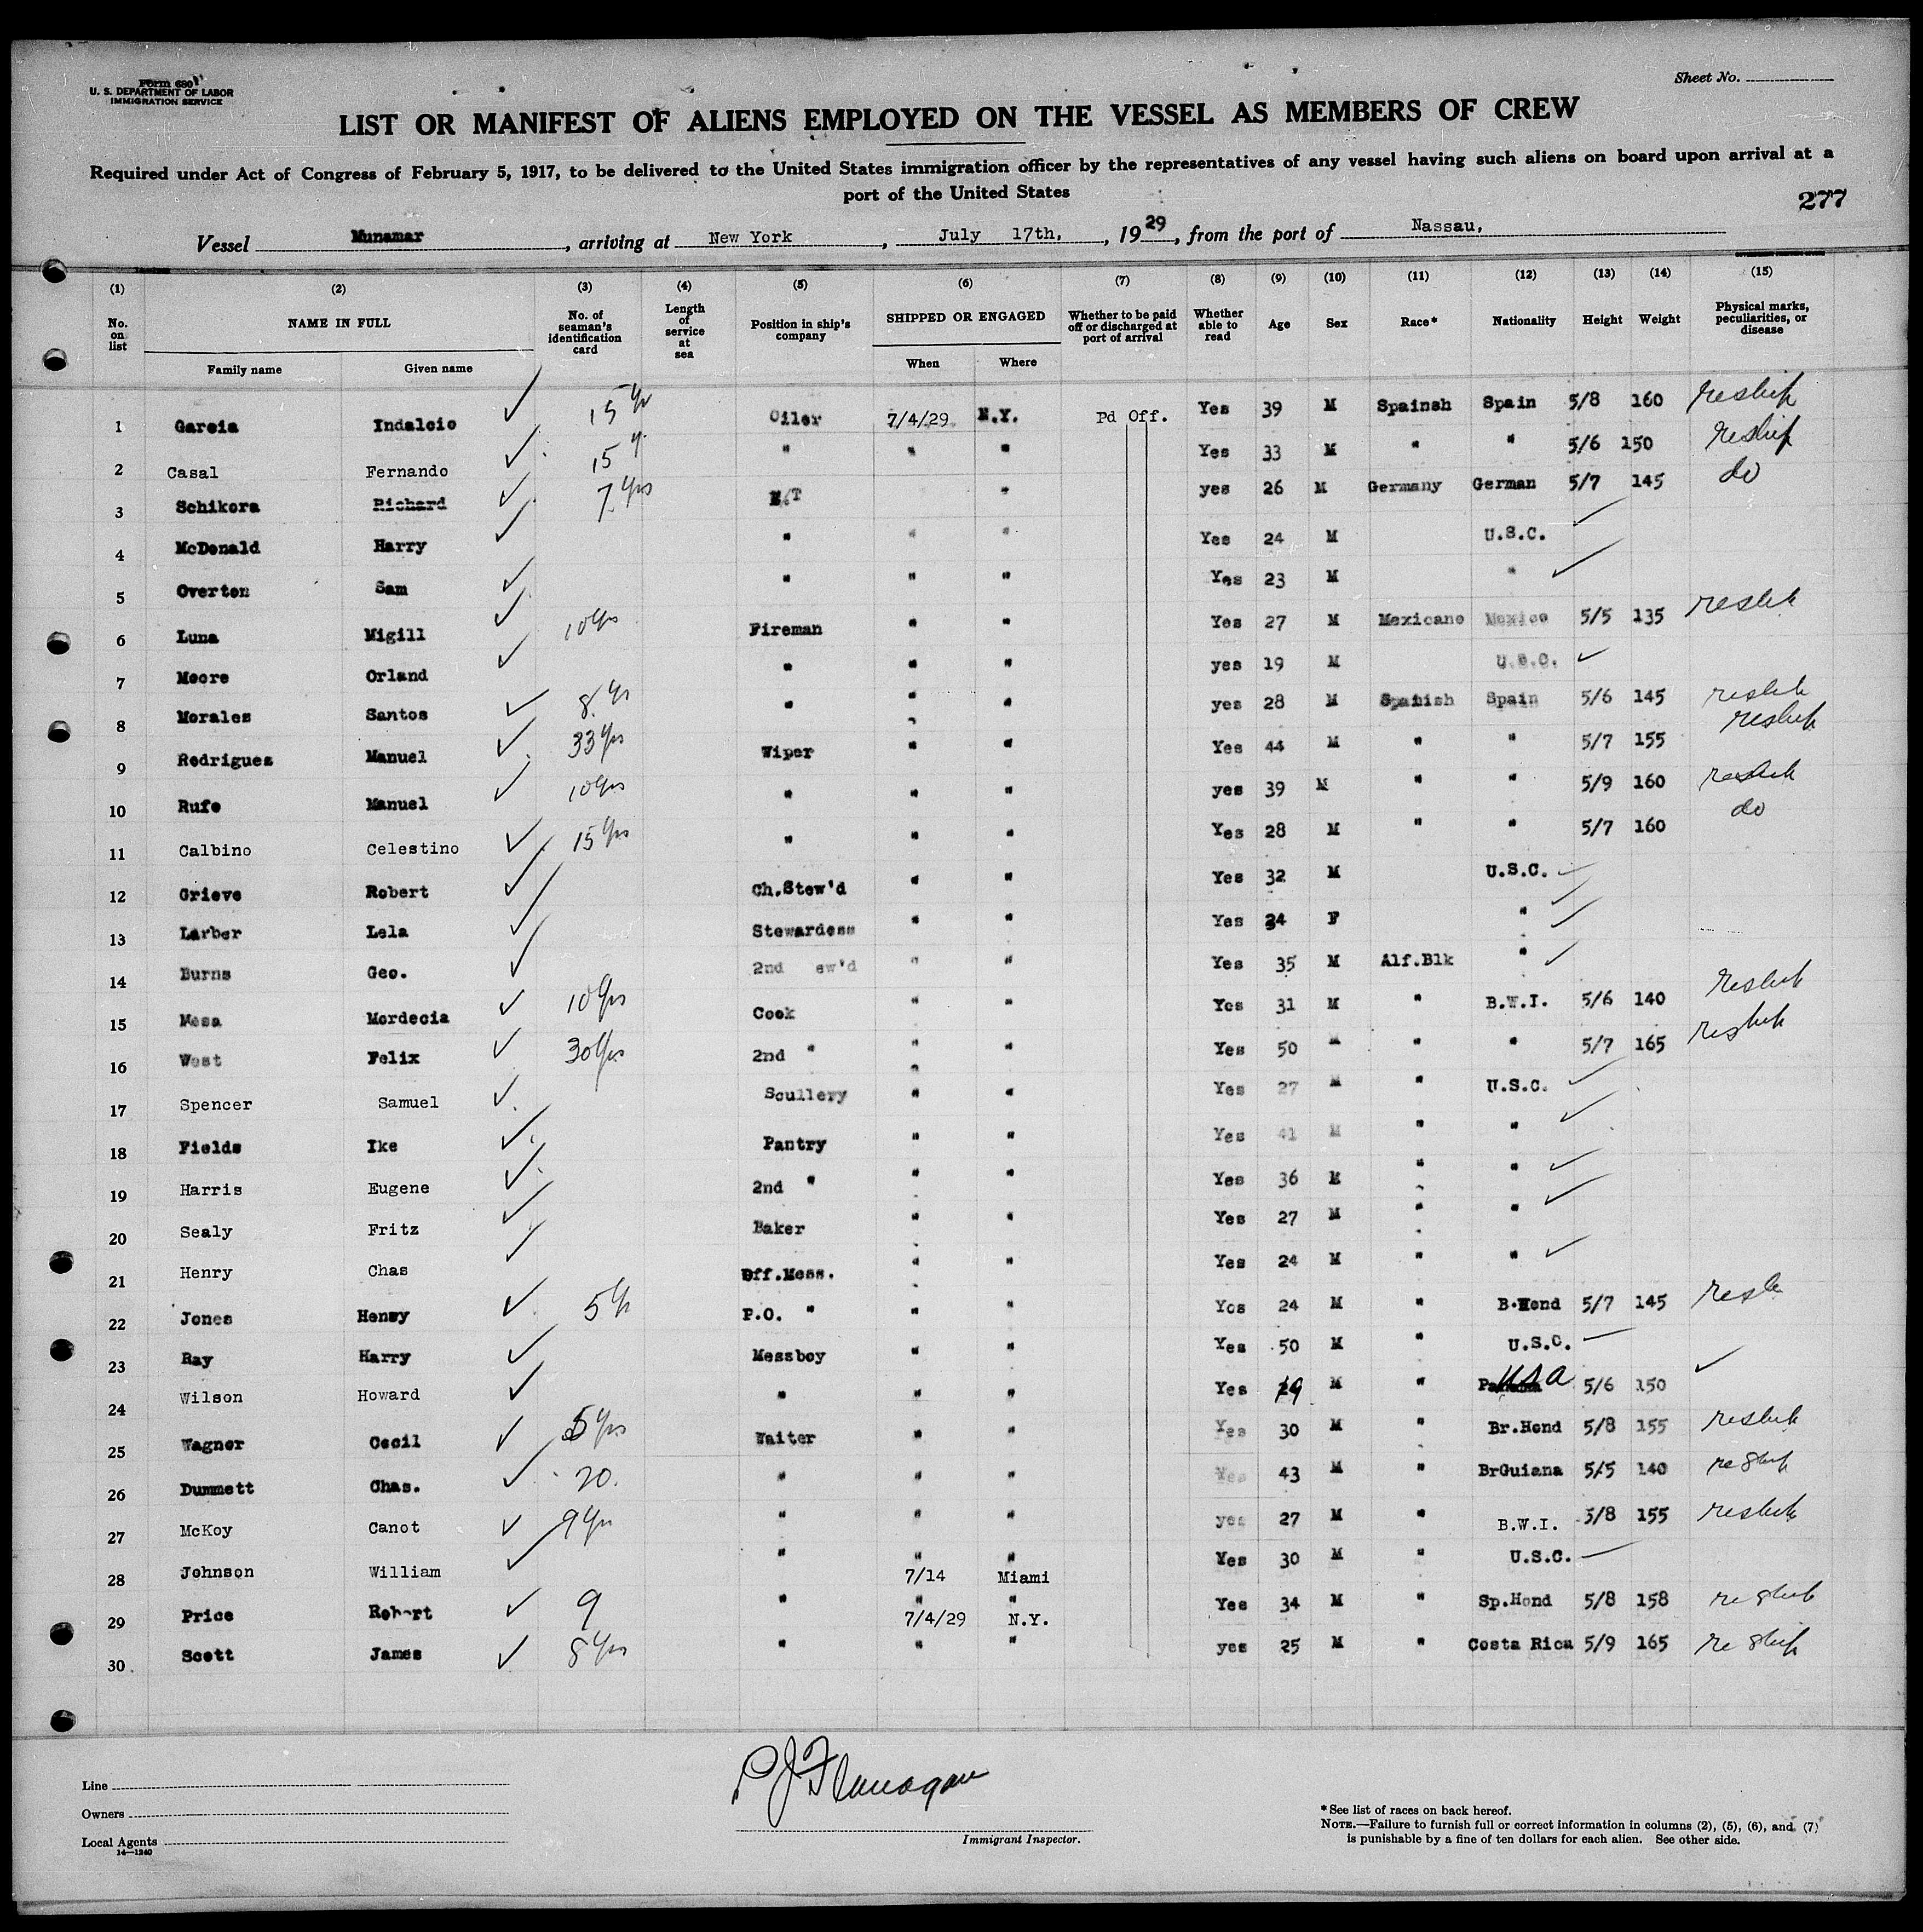 Form 680
U. S. DEPARTMENT OF LABOR
IMMIGRATION SERVICE
Sheet No.
LIST OR MANIFEST OF ALIENS EMPLOYED ON THE VESSEL AS MEMBERS OF CREW
Required under Act of Congress of February 5, 1917, to be delivered to the United States immigration officer by the representatives of any vessel having such aliens on board upon arrival at a
port of the United States
277
Vessel Munamar, arriving at New York, July 17th, 1929, from the port of Nassau,
(1) (2) (3) (4) (5) (6) (7) (8) (9) (10) (11) (12) (13) (14) (15)
No. on list NAME IN FULL Family name Given name No. of seaman's identification card Length of service at sea Position in ship's company SHIPPED OR ENGAGED When Where Whether to be paid off or discharged at port of arrival Whether able to read Age Sex Race* Nationality Height Weight Physical marks, peculiarities, or disease
1 Garcia Indalcio ✓ 15 yr Oiler 7/4/29 N.Y. Pd Off. Yes 39 M Spainsh Spain 5/8 160 reship
2 Casal Fernando ✓ 15 y. " " " Yes 33 M " " 5/6 150 reship
3 Schikora Richard ✓ 7 yrs W.T " yes 26 M Germany German 5/7 145 do
4 McDonald Harry ✓ " " " Yes 24 M U.S.C. ✓
5 Overton Sam ✓ " " " Yes 23 M " ✓
6 Luna Migill ✓ 10 yrs Fireman " " Yes 27 M Mexicano Mexico 5/5 135 reship
7 Moore Orland ✓ " " " yes 19 M U.S.C. ✓
8 Morales Santos ✓ 8 yrs " " " yes 28 M Spanish Spain 5/6 145 reship
9 Rodrigues Manuel ✓ 33 yrs Wiper " " Yes 44 M " " 5/7 155 reship
10 Rufo Manuel ✓ 10 yrs " " " yes 39 M " " 5/9 160 reship
11 Calbino Celestino ✓ 15 yrs " " " Yes 28 M " " 5/7 160 do
12 Grieve Robert ✓ Ch.Stew'd " " Yes 32 M U.S.C. ✓
13 Larber Lela ✓ Stewardess " " Yes 34 F " ✓
14 Burns Geo. ✓ 2nd ew'd " " Yes 35 M Alf.Blk " ✓
15 Mesa Mordecia ✓ 10 yrs Cook " " Yes 31 M " B.W.I. 5/6 140 reship
16 West Felix ✓ 30 yrs 2nd " " " Yes 50 M " " 5/7 165 reship
17 Spencer Samuel ✓ Scullery " " Yes 27 M " U.S.C. ✓
18 Fields Ike ✓ Pantry " " Yes 41 M " " ✓
19 Harris Eugene ✓ 2nd " " " Yes 36 M " " ✓
20 Sealy Fritz ✓ Baker " " Yes 27 M " " ✓
21 Henry Chas ✓ Off.Mess. " " Yes 24 M " " ✓
22 Jones Henry ✓ 5 yr P.O. " " " Yes 24 M " B.Hond 5/7 145
23 Ray Harry ✓ Messboy " " Yes 50 M " U.S.C.
24 Wilson Howard ✓ " " " Yes 29 M " USA 5/6 150 ✓
25 Wagner Cecil ✓ 5 yrs Waiter " " Yes 30 M " Br.Hond 5/8 155 reship
26 Dummett Chas. ✓ 20. " " " Yes 43 M " BrGuiana 5/5 140 reship
27 McKoy Canot ✓ 9 yrs " " " yes 27 M " B.W.I. 5/8 155 reship
28 Johnson William ✓ " 7/14 Miami Yes 30 M " U.S.C.
29 Price Robert ✓ 9 " 7/4/29 N.Y. Yes 34 M " Sp.Hond 5/8 158 reship
30 Scott James ✓ 8 yrs " " " yes 25 M " Costa Rica 5/9 165 reship
P J Flanagan
Immigrant Inspector.
Line
Owners
Local Agents
14—1240
*See list of races on back hereof.
NOTE.—Failure to furnish full or correct information in columns (2), (5), (6), and (7)
is punishable by a fine of ten dollars for each alien. See other side.